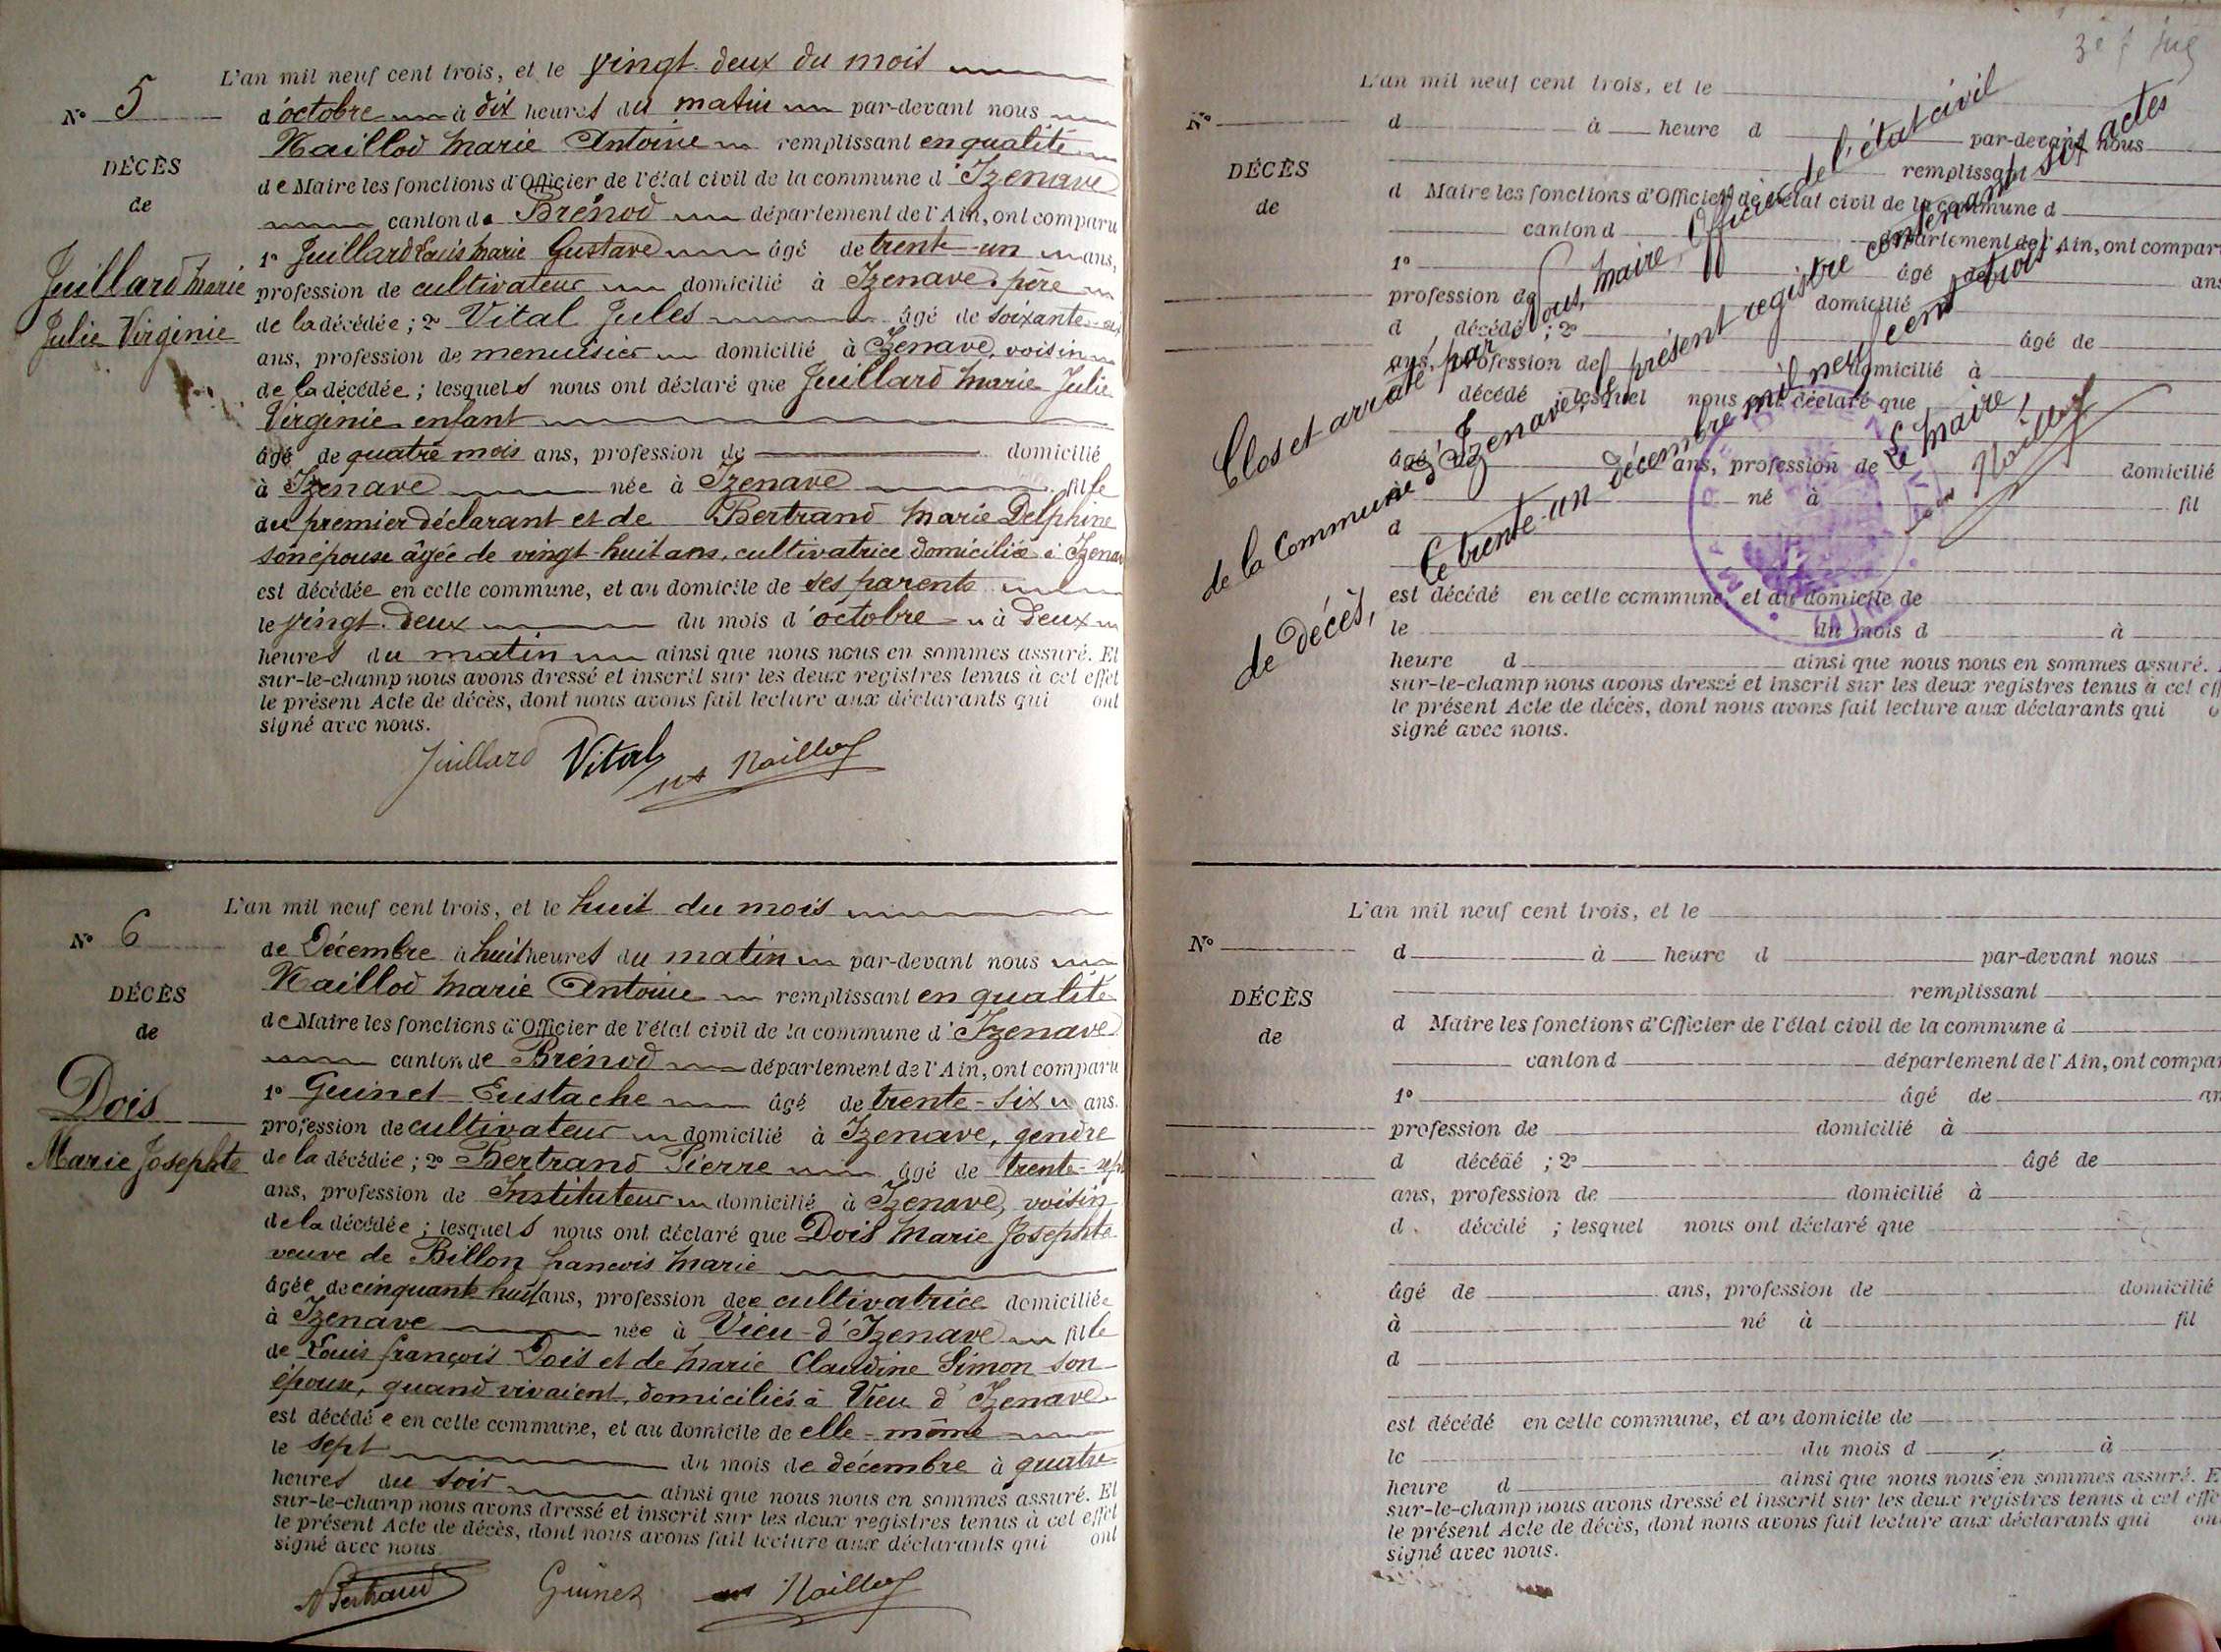 L'an mil neuf cent trois, et le vingt-deux du mois
N° 5
d'octobre à dix heures du matin par-devant nous
Naillod Marie Antoine remplissant en qualité
DÉCÈS
de Maire les fonctions d'Officier de l'état civil de la commune d'Izenave
de
canton de Brénod département de l'Ain, ont comparu
1° Juillard Louis Marie Gustave âgé de trente-un ans,
Juillard Marie
Julie Virginie
profession de cultivateur domicilié à Izenave, père
de la décédée ; 2° Vital Jules âgé de soixante-six
ans, profession de menuisier domicilié à Izenave, voisin
de la décédée ; lesquels nous ont déclaré que Juillard Marie Julie
Virginie enfant
âgé de quatre mois ans, profession de domicilié
à Izenave née à Izenave fille
du premier déclarant et de Bertrand Marie Delphine
son épouse âgée de vingt-huit ans, cultivatrice domiciliée à Izenave
est décédée en cette commune, et au domicile de ses parents
le vingt-deux du mois d'octobre à deux
heures du matin ainsi que nous nous en sommes assuré. Et
sur-le-champ nous avons dressé et inscrit sur les deux registres tenus à cet effet
le présent Acte de décès, dont nous avons fait lecture aux déclarants qui ont
signé avec nous.
Juillard Vital Naillod
L'an mil neuf cent trois, et le huit du mois
N° 6
de Décembre à huit heures du matin par-devant nous
Naillod Marie Antoine remplissant en qualité
DÉCÈS
de Maire les fonctions d'Officier de l'état civil de la commune d'Izenave
de
canton de Brénod département de l'Ain, ont comparu
1° Guinet Eustache âgé de trente-six ans.
Dois
Marie Josephte
profession de cultivateur domicilié à Izenave, gendre
de la décédée ; 2° Bertrand Pierre âgé de trente-sept
ans, profession de Instituteur domicilié à Izenave, voisin
de la décédée ; lesquels nous ont déclaré que Dois Marie Josephte
veuve de Billon françois Marie
âgée de cinquante huit ans, profession de cultivatrice domiciliée
à Izenave née à Vieu-d'Izenave fille
de Louis françois Dois et de Marie Claudine Simon son
épouse, quand vivaient, domiciliés à Vieu d'Izenave
est décédée en cette commune, et au domicile de elle-même
le sept du mois de décembre à quatre
heures du soir ainsi que nous nous en sommes assuré. Et
sur-le-champ nous avons dressé et inscrit sur les deux registres tenus à cet effet
le présent Acte de décès, dont nous avons fait lecture aux déclarants qui ont
signé avec nous
Bertrand Guinet Naillod
L'an mil neuf cent trois, et le
N°
d à heure d par-devant nous
remplissant
DÉCÈS
d Maire les fonctions d'Officier de l'état civil de la commune d
de
canton d département de l'Ain, ont compar
1° âgé de ans
profession de domicilié
d décédé ; 2° âgé de
ans, profession de domicilié à
d décédé ; lesquel nous ont déclaré que
âgé de ans, profession de domicilié
à né à fil
d
est décédé en cette commune, et au domicile de
le du mois d à
heure d ainsi que nous nous en sommes assuré.
sur-le-champ nous avons dressé et inscrit sur les deux registres tenus à cet eff
le présent Acte de décès, dont nous avons fait lecture aux déclarants qui o
signé avec nous.
Clos et arrêté par Nous, Maire, Officier de l'état civil
de la Commune d'Izenave, le présent registre contenant six actes
de décès, le trente-un décembre mil neuf cent trois
Le Maire,
Naillod
L'an mil neuf cent trois, et le
N°
d à heure d par-devant nous
remplissant
DÉCÈS
d Maire les fonctions d'Officier de l'état civil de la commune d
de
canton d département de l'Ain, ont compar
1° âgé de an
profession de domicilié à
d décédé ; 2° âgé de
ans, profession de domicilié à
d décédé ; lesquel nous ont déclaré que
âgé de ans, profession de domicilié
à né à fil
d
est décédé en cette commune, et au domicile de
le du mois d à
heure d ainsi que nous nous en sommes assuré. E
sur-le-champ nous avons dressé et inscrit sur les deux registres tenus à cet effe
le présent Acte de décès, dont nous avons fait lecture aux déclarants qui on
signé avec nous.